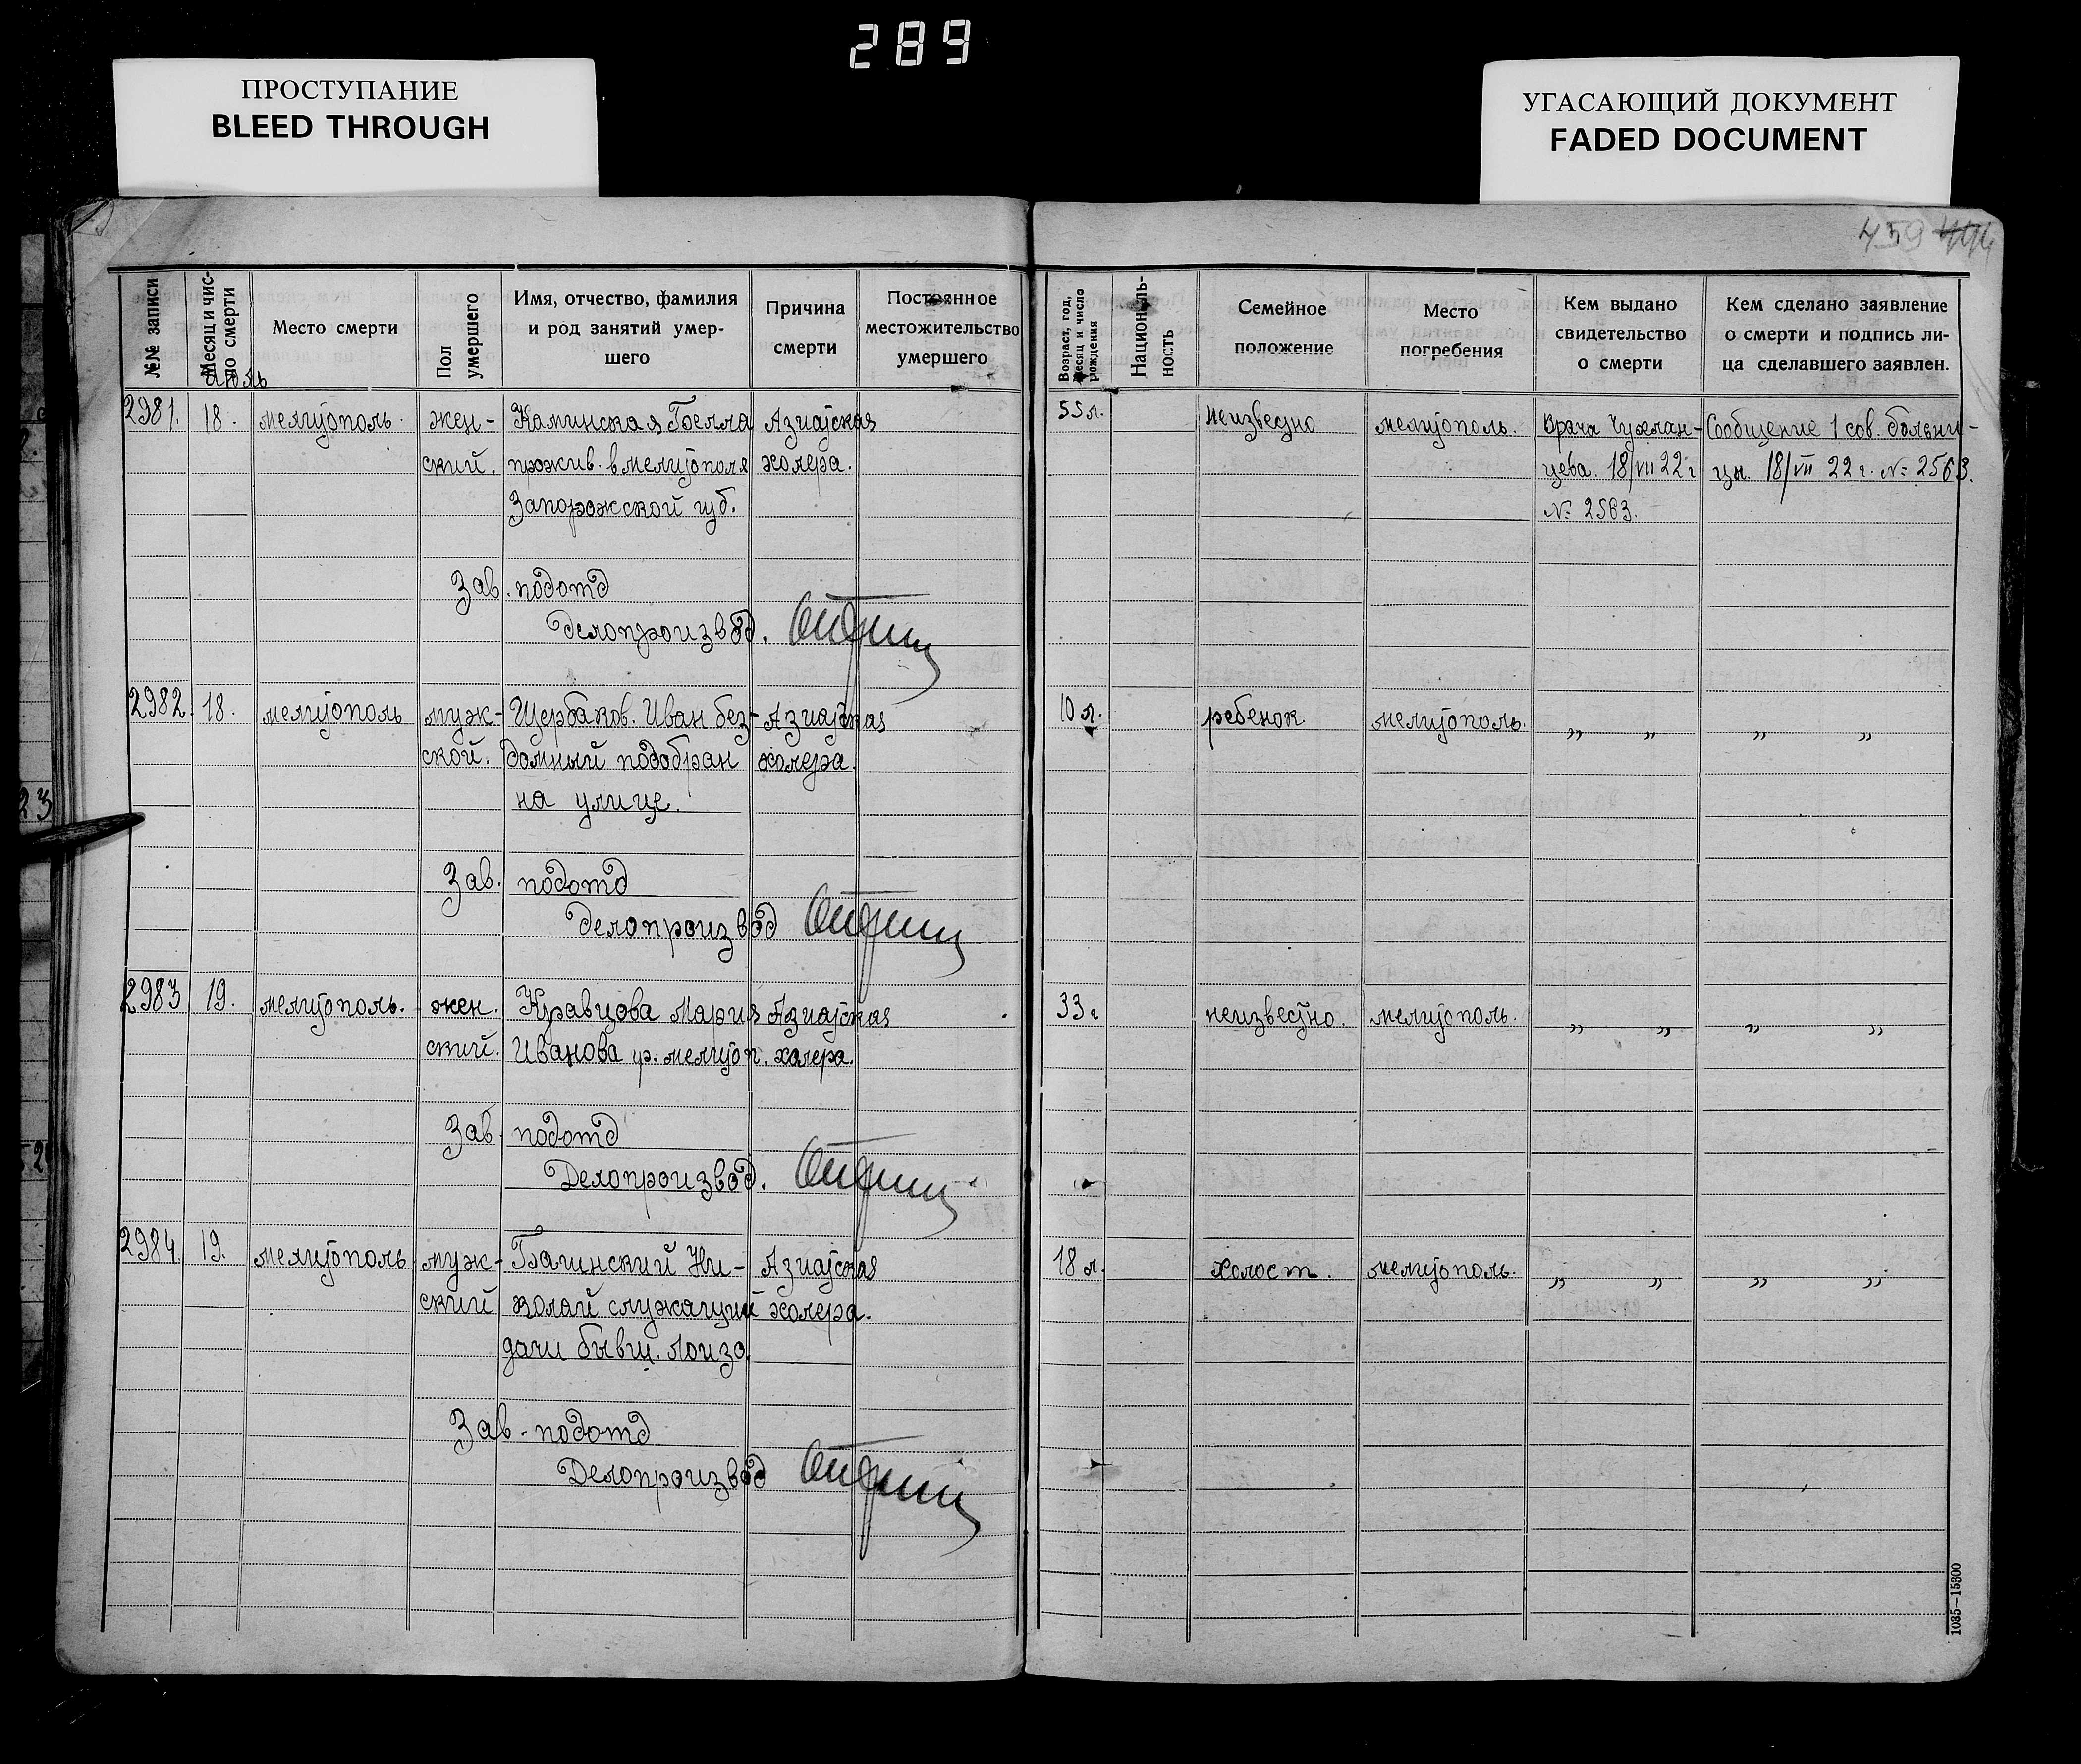 289
ПРОСТУПАНИЕ
BLEED THROUGH
УГАСАЮЩИЙ ДОКУМЕНТ
FADED DOCUMENT
459
№№ записи
Месяц и чис-
ло смерти
Место смерти
Пол
умершего
Имя, отчество, фамилия
и род занятий умер-
шего
Причина
смерти
Постоянное
местожительство
умершего
Возраст, год,
месяц и число
рождения
Националь-
ность
Семейное
положение
Место
погребения
Кем выдано
свидетельство
о смерти
Кем сделано заявление
о смерти и подпись ли-
ца сделавшего заявлен.
июль
2981. 18. мелитополь. жен- Каминская Белла Азиатская 55 л. Неизвестно мелитополь. Врача Чухлан- Сообщение 1 сов. больни-
ский. прожив. в мелитополя холера. цева 18/VII 22 г. цы. 18/VII 22 г. № 2563.
Запорожской губ. № 2563.
Зав. подотд
Делопроизвод.
2982 18. мелитополь муж- Щербаков. Иван без- Азиатская 10 л. ребенок мелитополь. „ „ „ „
ской. домный подобран холера.
на улице.
Зав. подотд
Делопроизвод
2983 19. мелитополь. жен. Кравцова Мария Азиатская 33 г неизвестно. мелитополь. „ „ „ „
ский. Иванова гр. мелитоп. холера.
Зав. подотд
Делопроизвод.
2984. 19. мелитополь муж- Бачинский Ни- Азиатская 18 л. холост. мелитополь. „ „ „ „
ский колай служащий холера.
дачи бывш.
Зав. подотд
Делопроизвод
1085—15300